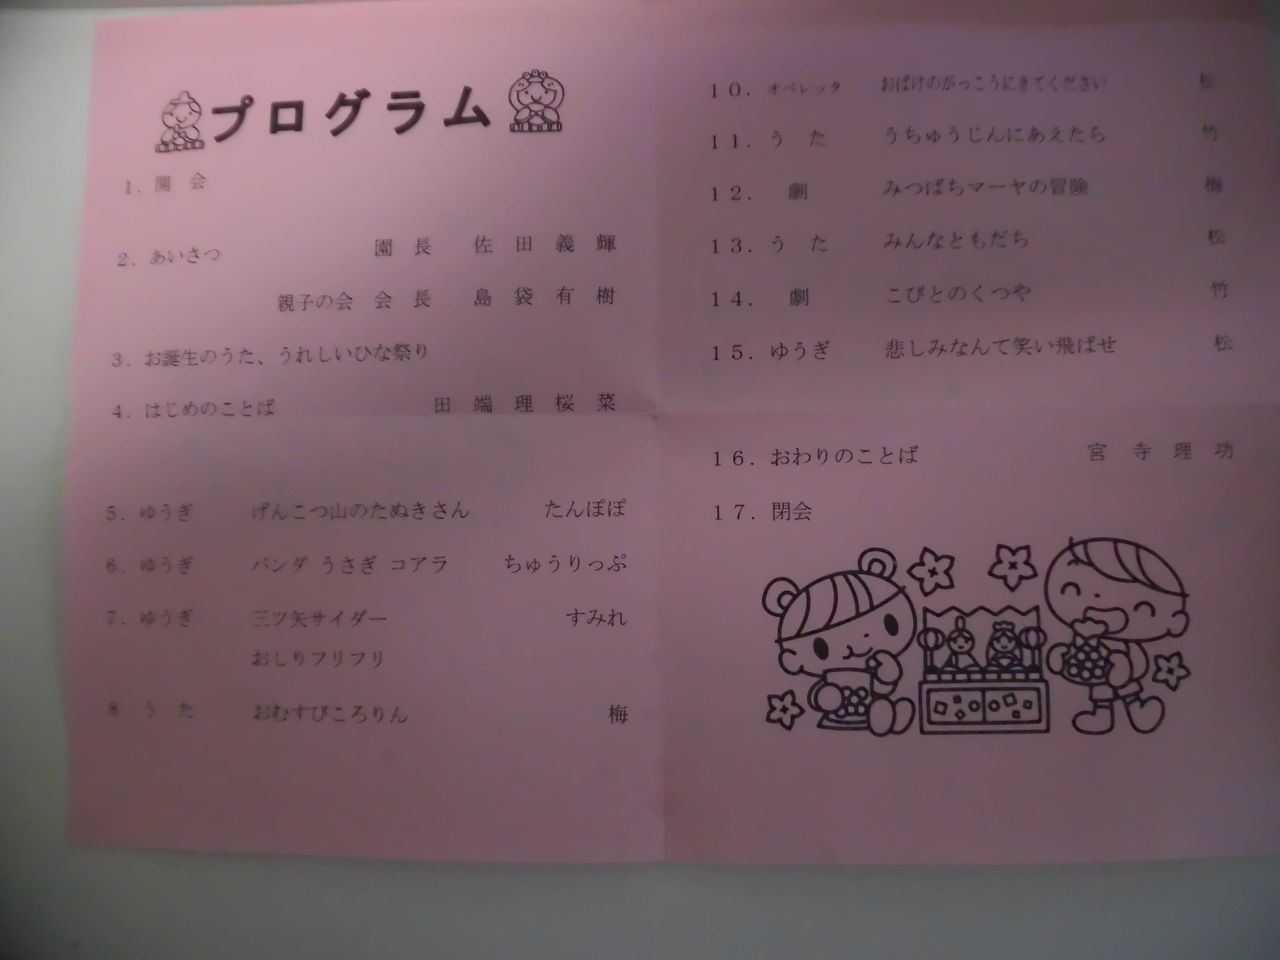 プログラム
1．開　会
2．あいさつ　園　長　佐　田　義　輝
親子の会　会　長　島　袋　有　樹
3．お誕生のうた、うれしいひな祭り
4．はじめのことば　田　端　理　桜　菜
5．ゆうぎ　げんこつ山のたぬきさん　たんぽぽ
6．ゆうぎ　パンダ うさぎ コアラ　ちゅうりっぷ
7．ゆうぎ　三ツ矢サイダー　すみれ
おしりフリフリ
8　う　た　おむすびころりん　梅
１０．オペレッタ　おばけのがっこうにきてください　松
１１．う　た　うちゅうじんにあえたら　竹
１２．　劇　みつばちマーヤの冒険　梅
１３．う　た　みんなともだち　松
１４．　劇　こびとのくつや　竹
１５．ゆうぎ　悲しみなんて笑い飛ばせ　松
１６．おわりのことば　宮　寺　理　功
１７．閉会